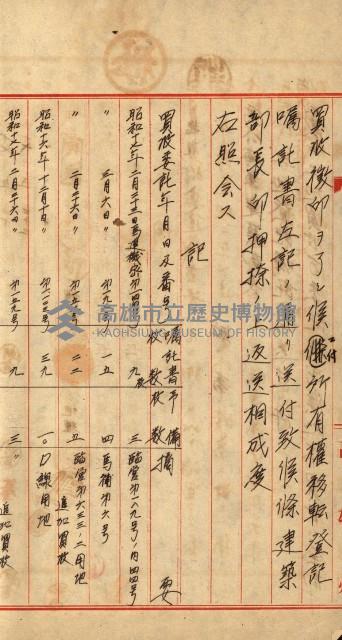 買收徵印ヲ了シ候ニ付所有權移転登記
嘱託書左記ノ通リ送付致候條建築
部長印押捺ノ上返送相成度
右照会ス
記
買收委託年月日及番号 嘱託書枚数 市枚数 備摘要
昭和十七年二月二十三日馬連機密第一四号 九枚 三 臨営第一八九号ノ内四四号
〃 三月六日〃 第九号 一五 四 馬補第六号
〃 二月二十六日〃 第一五号 二二 五 臨営第六三三ノ二用地 追加買收
昭和十六年十二月十日〃 第一二三号 三九 一〇 口線用地
昭和十七年二月二十六日〃 第一五九号 九 三 〃 追加買收
高雄市立歷史博物館
KAOHSIUNG MUSEUM OF HISTORY